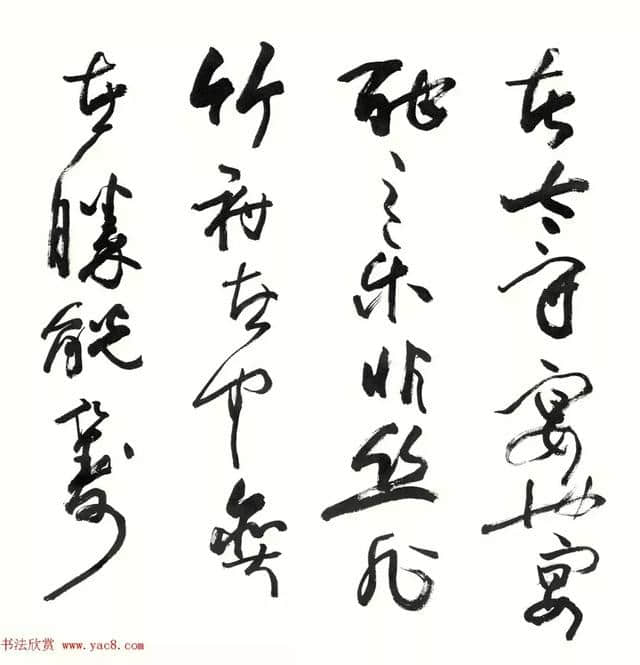 者太守宴也宴
酣之乐非丝非
竹射者中弈
者勝觥籌
书法欣赏 www.yac8.com